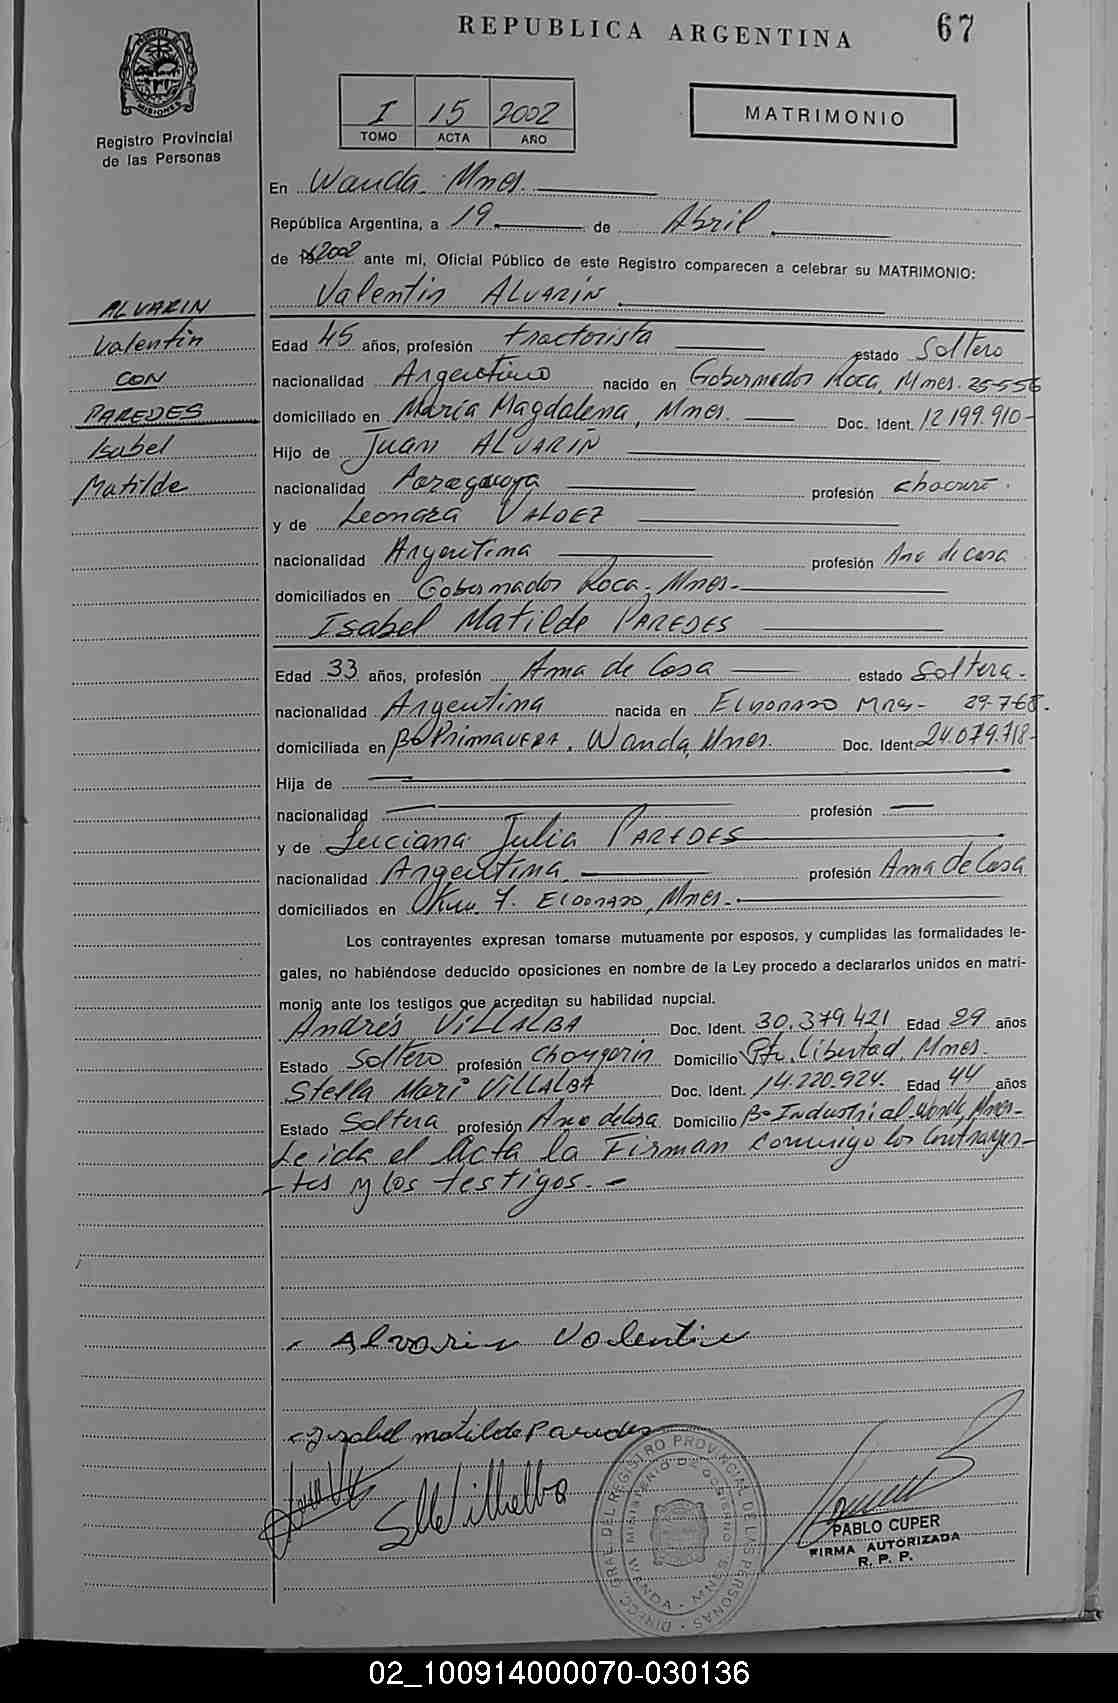 REPUBLICA ARGENTINA
67
MISIONES
Registro Provincial
de las Personas
I 15 2002
TOMO ACTA AÑO
MATRIMONIO
En Wanda - Mnes.
República Argentina, a 19 de Abril
de 2002 ante mi, Oficial Público de este Registro comparecen a celebrar su MATRIMONIO:
Valentin ALVARIN
ALVARIN
Valentin
CON
PAREDES
Isabel
Matilde
Edad 45 años, profesión tractorista estado Soltero
nacionalidad Argentino nacido en Gobernador Roca, Mnes. 25-5-56
domiciliado en María Magdalena, Mnes. Doc. Ident. 12.199.910-
Hijo de Juan ALVARIN
nacionalidad Paraguaya profesión
y de Leonara VALDEZ
nacionalidad Argentina profesión Ama de casa
domiciliados en Gobernador Roca - Mnes-
Isabel Matilde PAREDES
Edad 33 años, profesión Ama de Casa estado Soltera-
nacionalidad Argentina nacida en ELDORADO Mnes- 29-7-68.
domiciliada en Bº PRIMAVERA, Wanda, Mnes. Doc. Ident. 24.079.718-
Hija de
nacionalidad profesión
y de Luciana Julia PAREDES
nacionalidad Argentina profesión Ama de Casa
domiciliados en 7. ELDORADO, Mnes.-
Los contrayentes expresan tomarse mutuamente por esposos, y cumplidas las formalidades le-
gales, no habiéndose deducido oposiciones en nombre de la Ley procedo a declararlos unidos en matri-
monio ante los testigos que acreditan su habilidad nupcial.
Andrés VILLALBA Doc. Ident. 30.379.421 Edad 29 años
Estado Soltero profesión Domicilio Pto. Libertad, Mnes.
Stella Mari VILLALBA Doc. Ident. 14.220.924. Edad 44 años
Estado Soltera profesión Ama de Casa Domicilio Bº Industrial-Wanda, Mnes-
Leida el Acta la Firman conmigo los Contrayen-
-tes y los testigos.-
Alvarin Valentin
Isabel matilde Paredes
DIREC. GRAL. DEL REGISTRO PROVINCIAL DE LAS PERSONAS
MINISTERIO DE GOBIERNO
WANDA - MNES.
PABLO CUPER
FIRMA AUTORIZADA
R. P. P.
02_100914000070-030136